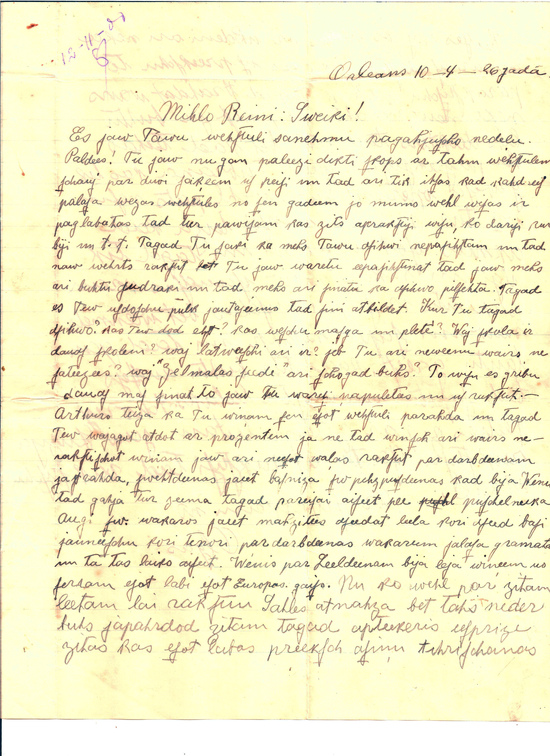 12-11-21
Orleans 10-4-26 gadā.
Mihlo Reini: Sweiki!
Es jaw Tawu wehstuli sanehmu pagahjuscho nedelu.
Paldees! Tu jaw nu gan paleezi dikti skops ar tahm wehstulem
par diwi un tad ari tik ihsas kad kahds
palaja wezas wehstules no sen gadeem jo mums wehl wisas ir
paglabatas tad tur pawisam kas zits ko dariji kur
biji un t.t. Tagad Tu saki ka mehs Tawu dsihwi nepasihstam un tad
naw wehrts rakstit Tu jaw waretu eepasihstinat tad jaw mehs
ari buhtu gudraki un tad mehs ari sinatu ka dsihwo pilsehta. Tagad
es Tew usdoschu pulk jautajumus tad sini atbildet. Kur Tu tagad
dsihwo? Kas Tew dod ehst? Kas weschu masga un plete? Waj skola ir
daudz skoleni? waj latweeschi ari ir? jeb Tu ari neweenu wairs ne
pateezees? waj "Jelmalas seedi" ari schogad buhs? To wisu es gribu
daudz maz sinat to jaw Tu wari napuletas un rakstit.—
Arthurs teiza ka Tu winam sen esot wehstuli parahda un tagad
Tew wajagot atdot ar prozentem ja ne tad winsch ari wairs ne-
rakstischot winam jaw ari neesot walas rakstit par darbdeenam
jastrahda, swehtdeenas jaeet basniza pehzpusdeenas kad bija Weniba
tad gahja tur seema tagad pareisi aiseet pee puischelneeka
Augi. wakaros jaeet mahzitees dseedat leela kori dseed basi
jauneeschu kori tenori par darbdeenas wakarem jalasa gramata
un ta tas laiks aiseet. Wensis par Leeldeenam bija leja wineem no
fermam esot labi esot Europas gaiss. Nu ko wehl par zitam
leetam lai rakstu Sahles atnahza bet tahs neder
buhs japahrdod zitam tagad aptekeris
zitas kas esot labas preeksch asins tihrischanas